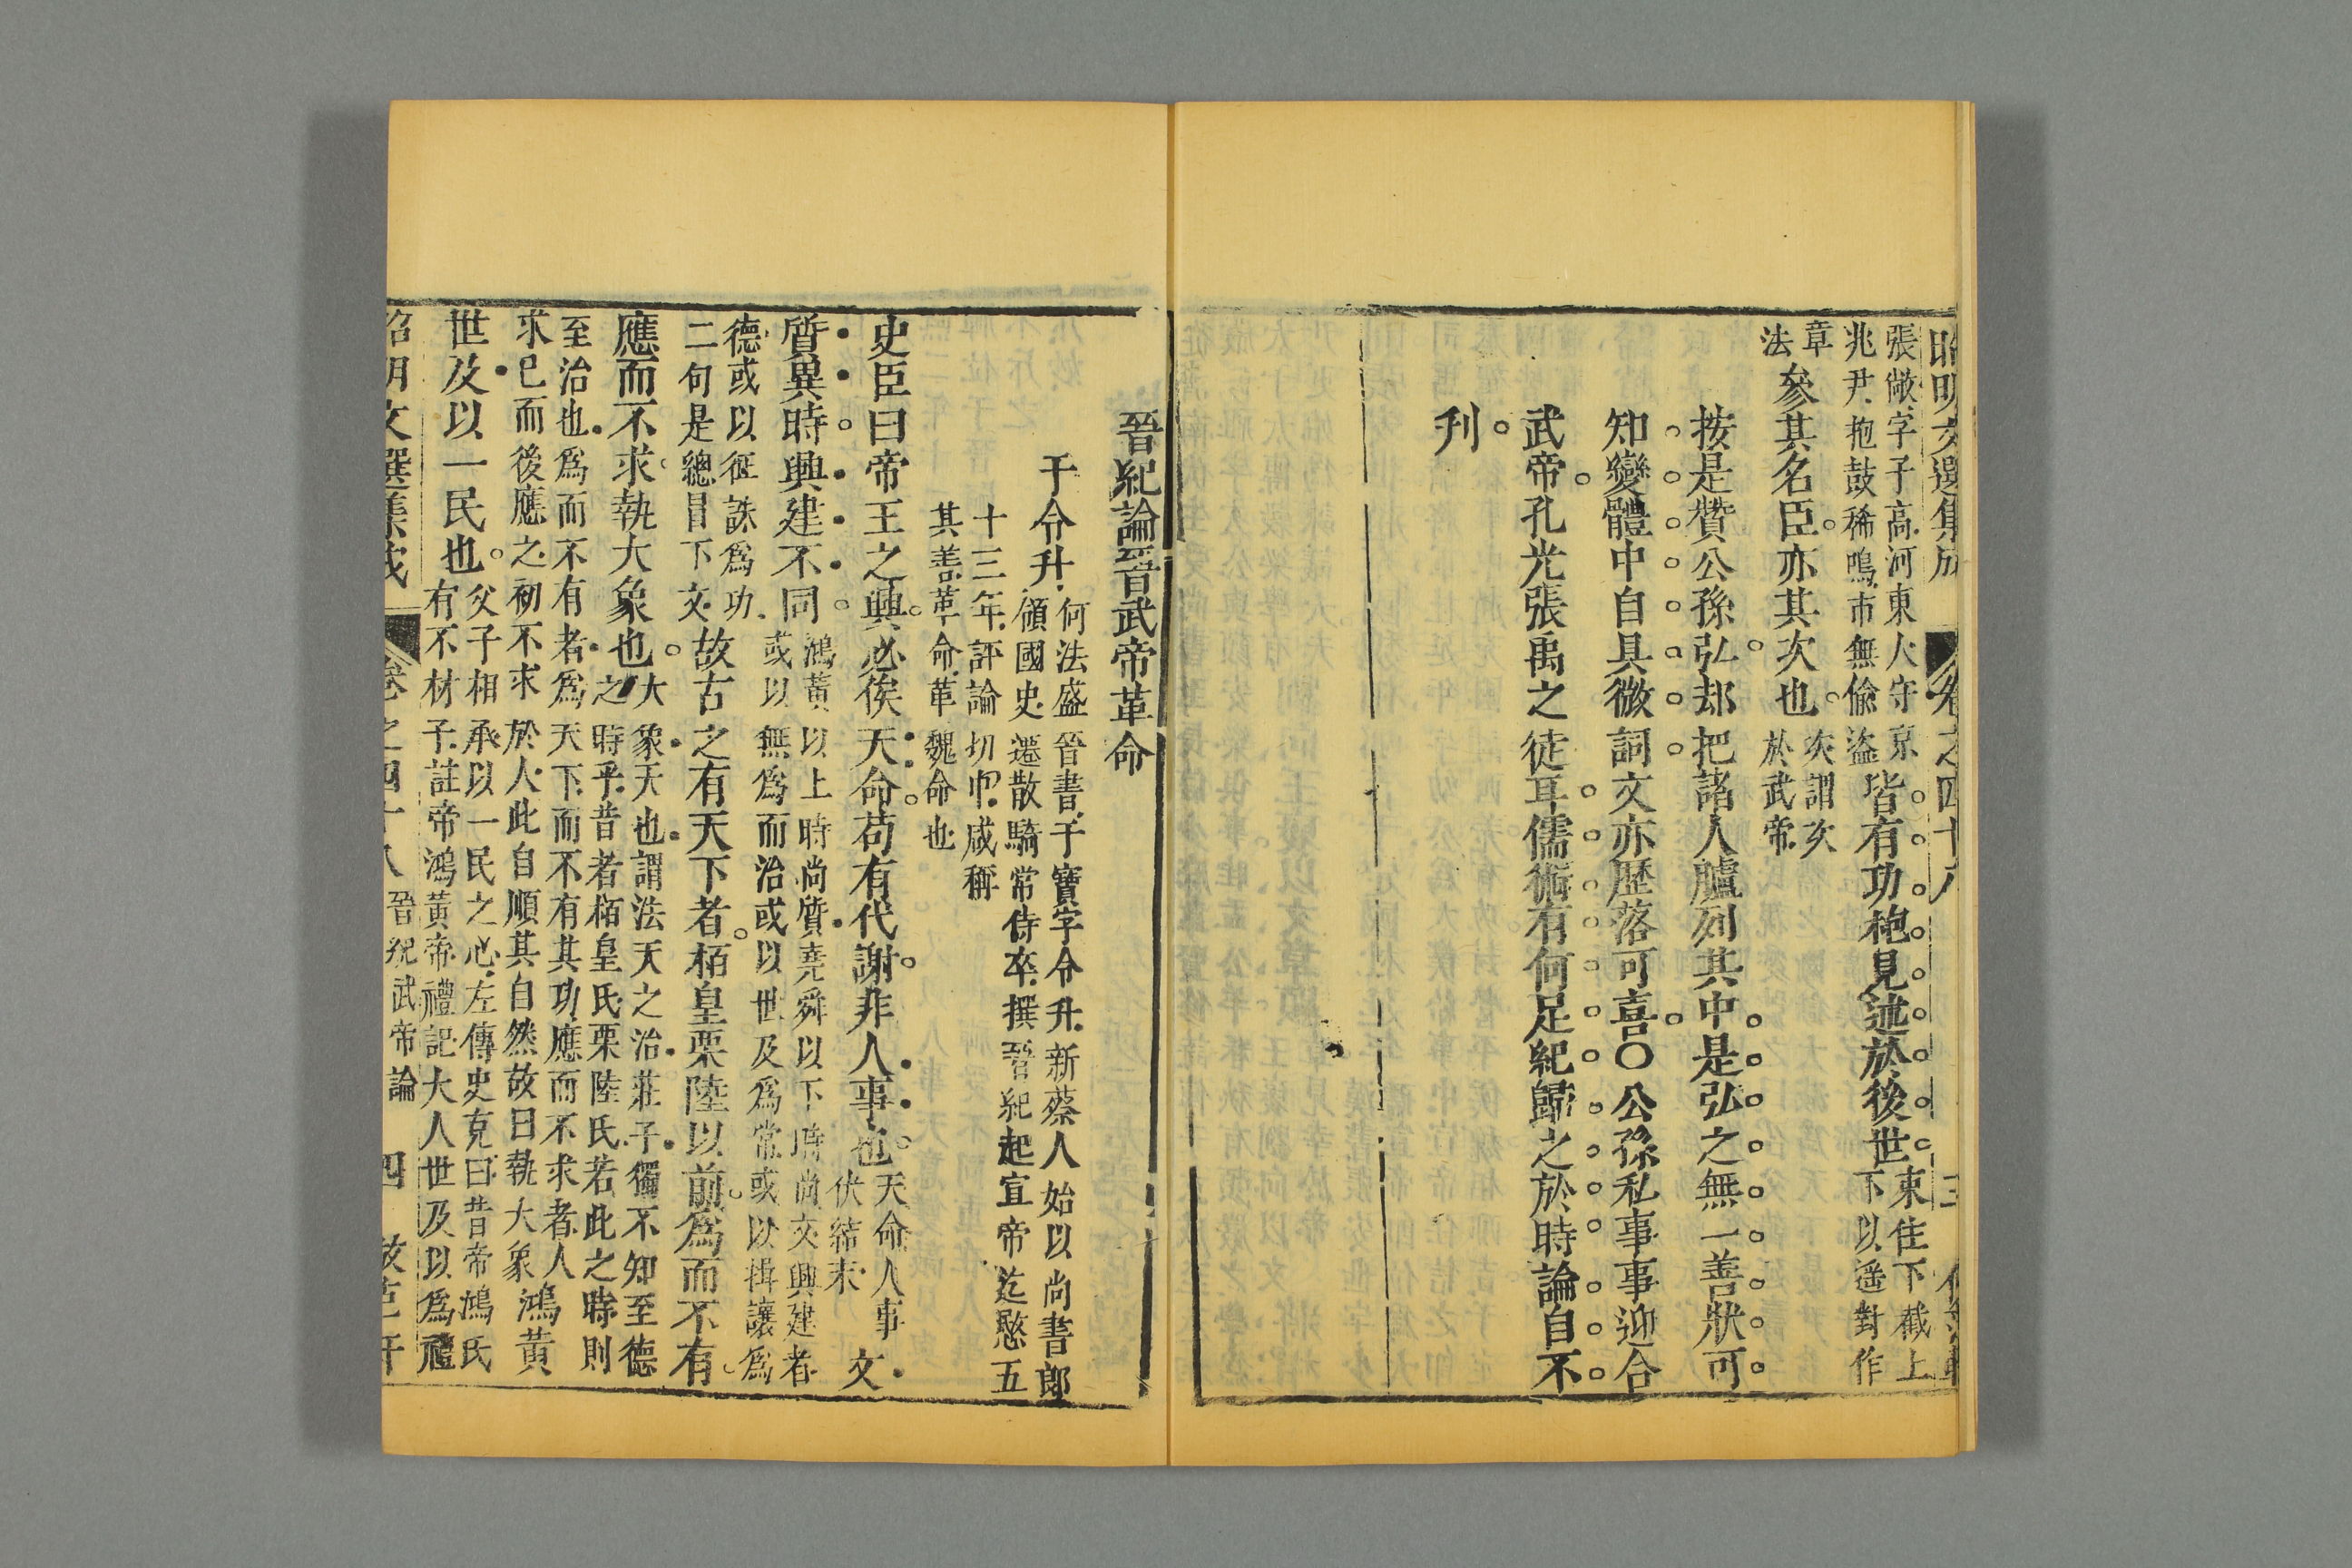 昭明文選集成 卷之四十八 三
張敞字子高河東人守京
兆尹抱鼓稀鳴市無偷盜
皆有功枹見述於後世
東住下截上
下以遥對作
章
法
參其名臣亦其次也
次謂亥
於武帝
按是贊公孫弘却把諸人臚列其中是弘之無一善狀可
知變體中自具微詞文亦歴落可喜〇公孫私事事迎合
武帝孔光張禹之徒耳儒術有何足紀歸之於時論自不
刋
晉紀論晉武帝革命
于令升
何法盛晉書于寶字令升新蔡人始以尚書郎
領國史遷散騎常侍卒撰晉紀起宣帝迄愍五
十三年評論切中咸稱
其善革命革魏命也
史臣曰帝王之興必俟天命苟有代謝非人事也
天命人事
伏結末
文
質異時興建不同
鴻黃以上時尚質堯舜以下時尚文興建者
或以無爲而治或以世及爲常或以揖讓爲
德或以征誅爲功
二句是總冒下文
故古之有天下者栢皇栗陸以前爲而不有
應而不求執大象也
大象天也謂法天之治莊子獨不知至德
之時乎昔者栢皇氏栗陸氏若此之時則
至治也爲而不有者爲天下而不有其功應而不求者人
求已而後應之初不求於人此自順其自然故曰執大象
鴻黃
世及以一民也
父子相承以一民之心左傳史克曰昔帝鴻氏
有不材子註帝鴻黃帝禮記大人世及以爲禮
昭明文選集成 卷之四十八 晉紀武帝論 四